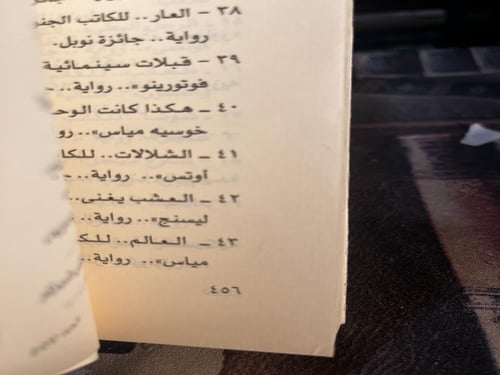 ٣٨ - العار.. للكاتب الجنو
رواية.. جائزة نوبل.
٣٩ - قبلات سينمائية
فوتورينو».. رواية.. -
٤٠ - هكذا كانت الوحد
خوسيه مياس».. رو
٤١ - الشلالات.. للكا
أوتس».. رواية.. -
٤٢ - العشب يغنى..
ليسنج».. رواية..
٤٣ - العالم.. للك
مياس».. رواية..
٤٥٦